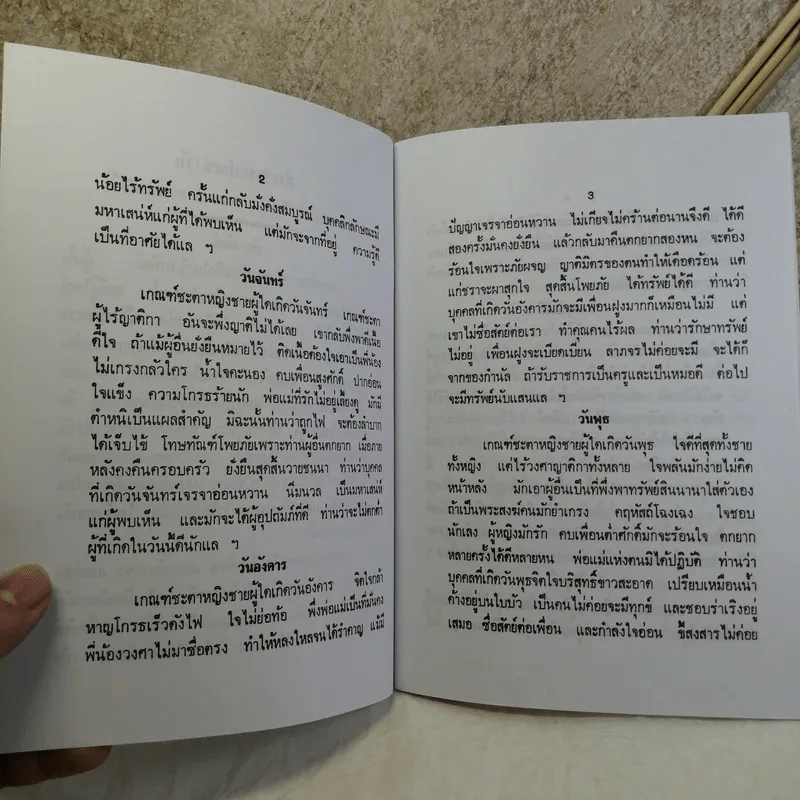 2
น้อยไร้ทรัพย์ ครั้นแก่กลับมั่งคั่งสมบูรณ์ บุคคลิกลักษณะมี
มหาเสน่ห์แก่ผู้ที่ได้พบเห็น แต่มักจะจากที่อยู่ ความรู้ดี
เป็นที่อาศัยได้แล ฯ
วันจันทร์
เกณฑ์ชะตาหญิงชายผู้ใดเกิดวันจันทร์ เกณฑ์ชะตา
ผู้ไร้ญาติกา อันจะพึ่งญาติไม่ได้เลย เขากลับพึ่งพาดีเนื้อ
ดีใจ ถ้าแม้ผู้อื่นยั่งยืนหมายไว้ ติดเนื้อต้องใจเอาเป็นพี่น้อง
ไม่เกรงกลัวใคร น้ำใจคะนอง คบเพื่อนสูงศักดิ์ ปากอ่อน
ใจแข็ง ความโกรธร้ายนัก พ่อแม่ที่รักไม่อยู่เลี้ยงดู มักมี
ตำหนิเป็นแผลสำคัญ มิฉะนั้นท่านว่าถูกไฟ จะต้องลำบาก
ได้เจ็บไข้ โทษทัณฑ์โพยภัยเพราะท่านผู้อื่นตกยาก เมื่อภาย
หลังคงคืนครอบครัว ยั่งยืนสุดสิ้นวายชนนา ท่านว่าบุคคล
ที่เกิดวันจันทร์เจรจาอ่อนหวาน นิ่มนวล เป็นมหาเสน่ห์
แก่ผู้พบเห็น และมักจะได้ผู้อุปถัมภ์ที่ดี ท่านว่าจะไม่ตกต่ำ
ผู้ที่เกิดในวันนี้ดีนักแล ฯ
วันอังคาร
เกณฑ์ชะตาหญิงชายผู้ใดเกิดวันอังคาร จิตใจกล้า
หาญโกรธเร็วดั่งไฟ ใจไม่ย่อท้อ พึ่งพ่อแม่เป็นที่มั่นคง
พี่น้องวงศาไม่มาซื่อตรง ทำให้หลงใหลจนได้รำคาญ แม้มี
3
ปัญญาเจรจาอ่อนหวาน ไม่เกียจไม่คร้านต่อนานจึงดี ได้ดี
สองครั้งมั่นคงยั่งยืน แล้วกลับมาคืนตกยากสองหน จะต้อง
ร้อนใจเพราะภัยผจญ ญาติมิตรของตนทำให้เดือดร้อน แต่
แก่ชราจะผาสุกใจ สุดสิ้นโพยภัย ได้ทรัพย์ได้ดี ท่านว่า
บุคคลที่เกิดวันอังคารมักจะมีเพื่อนฝูงมากก็เหมือนไม่มี แต่
เขาไม่ซื่อสัตย์ต่อเรา ทำคุณคนไร้ผล ท่านว่ารักษาทรัพย์
ไม่อยู่ เพื่อนฝูงจะเบียดเบียน ลาภจรไม่ค่อยจะมี จะได้ก็
จากของกำนัล ถ้ารับราชการเป็นครูและเป็นหมอดี ต่อไป
จะมีทรัพย์นับแสนแล ฯ
วันพุธ
เกณฑ์ชะตาหญิงชายผู้ใดเกิดวันพุธ ใจดีที่สุดทั้งชาย
ทั้งหญิง แต่ไร้วงศาญาติกาทั้งหลาย ใจพลันมักง่ายไม่คิด
หน้าหลัง มักเอาผู้อื่นเป็นที่พึ่งพาทรัพย์สินนานาใส่ตัวเอง
ถ้าเป็นพระสงฆ์คนมักยำเกรง คฤหัสถ์โฉงเฉง ใจชอบ
นักเลง ผู้หญิงมักรัก คบเพื่อนต่ำศักดิ์มักจะร้อนใจ ตกยาก
หลายครั้งได้ดีหลายหน พ่อแม่แห่งตนมิได้ปฏิบัติ ท่านว่า
บุคคลที่เกิดวันพุธจิตใจบริสุทธิ์ขาวสะอาด เปรียบเหมือนน้ำ
ค้างอยู่บนใบบัว เป็นคนไม่ค่อยจะมีทุกข์ และชอบร่าเริงอยู่
เสมอ ซื่อสัตย์ต่อเพื่อน และกำลังใจอ่อน ขี้สงสารไม่ค่อย